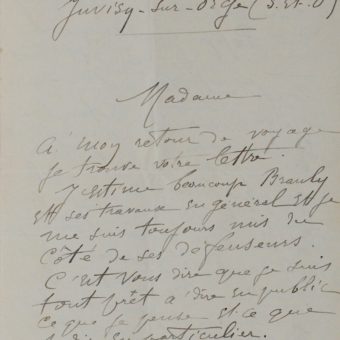 Juvisy-sur-Orge (S.-et-O)
Madame
A' moy retour de voyage
je trouve votre lettre.
J'estime beaucoup Branly
et ses travaux en général et je
me suis toujours mis du
côté de ses défenseurs.
C'est vous dire que je suis
tout prêt à dire en public
ce que je pense et ce que
dire en particulier.